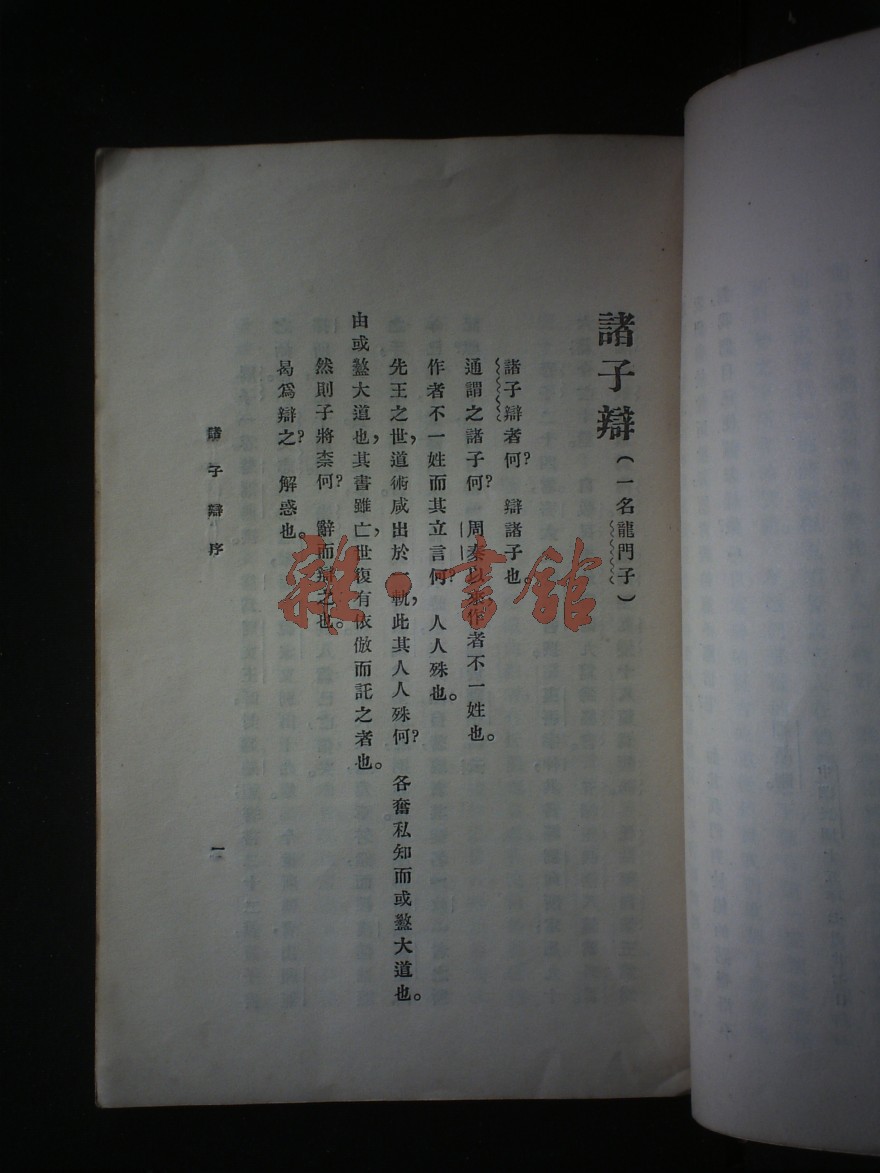 諸子辯(一名龍門子)
諸子辯者何?辯諸子也。
通謂之諸子何?周秦以來,作者不一姓也。
作者不一姓而其立言何?人人殊也。
先王之世,道術咸出於一軌,此其人人殊何?各奮私知而或盭大道也。
由或盭大道也,其書雖亡,世復有依倣而託之者也。
然則子將柰何?辭而辯之也。
曷爲辯之?解惑也。
諸子辯序
一
雜·書館